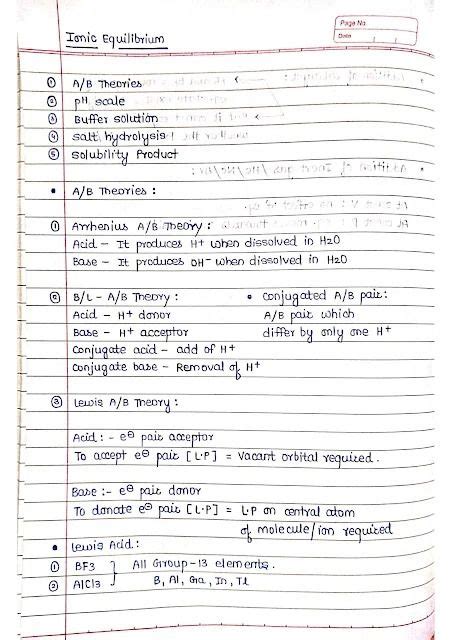 Page No.
Date
Ionic Equilibrium
① A/B Theories
② pH scale
③ Buffer solution
④ salt hydrolysis
⑤ solubility Product
• A/B Theories :
① Arrhenius A/B Theory :
Acid – It produces H+ when dissolved in H2O
Base – It produces OH– when dissolved in H2O
② B/L - A/B Theory :
Acid – H+ donor
Base – H+ acceptor
Conjugate acid – add of H+
Conjugate base – Removal of H+
• Conjugated A/B pair:
A/B pair which
differ by only one H+
③ Lewis A/B Theory :
Acid : - e⊖ pair acceptor
To accept e⊖ pair [L·P] = Vacant orbital required.
Base :- e⊖ pair donor
To donate e⊖ pair [L·P] = L·P on central atom
of molecule/ion required
• Lewis Acid :
① BF3 ] All Group-13 elements.
② AlCl3 B, Al, Ga, In, Tl